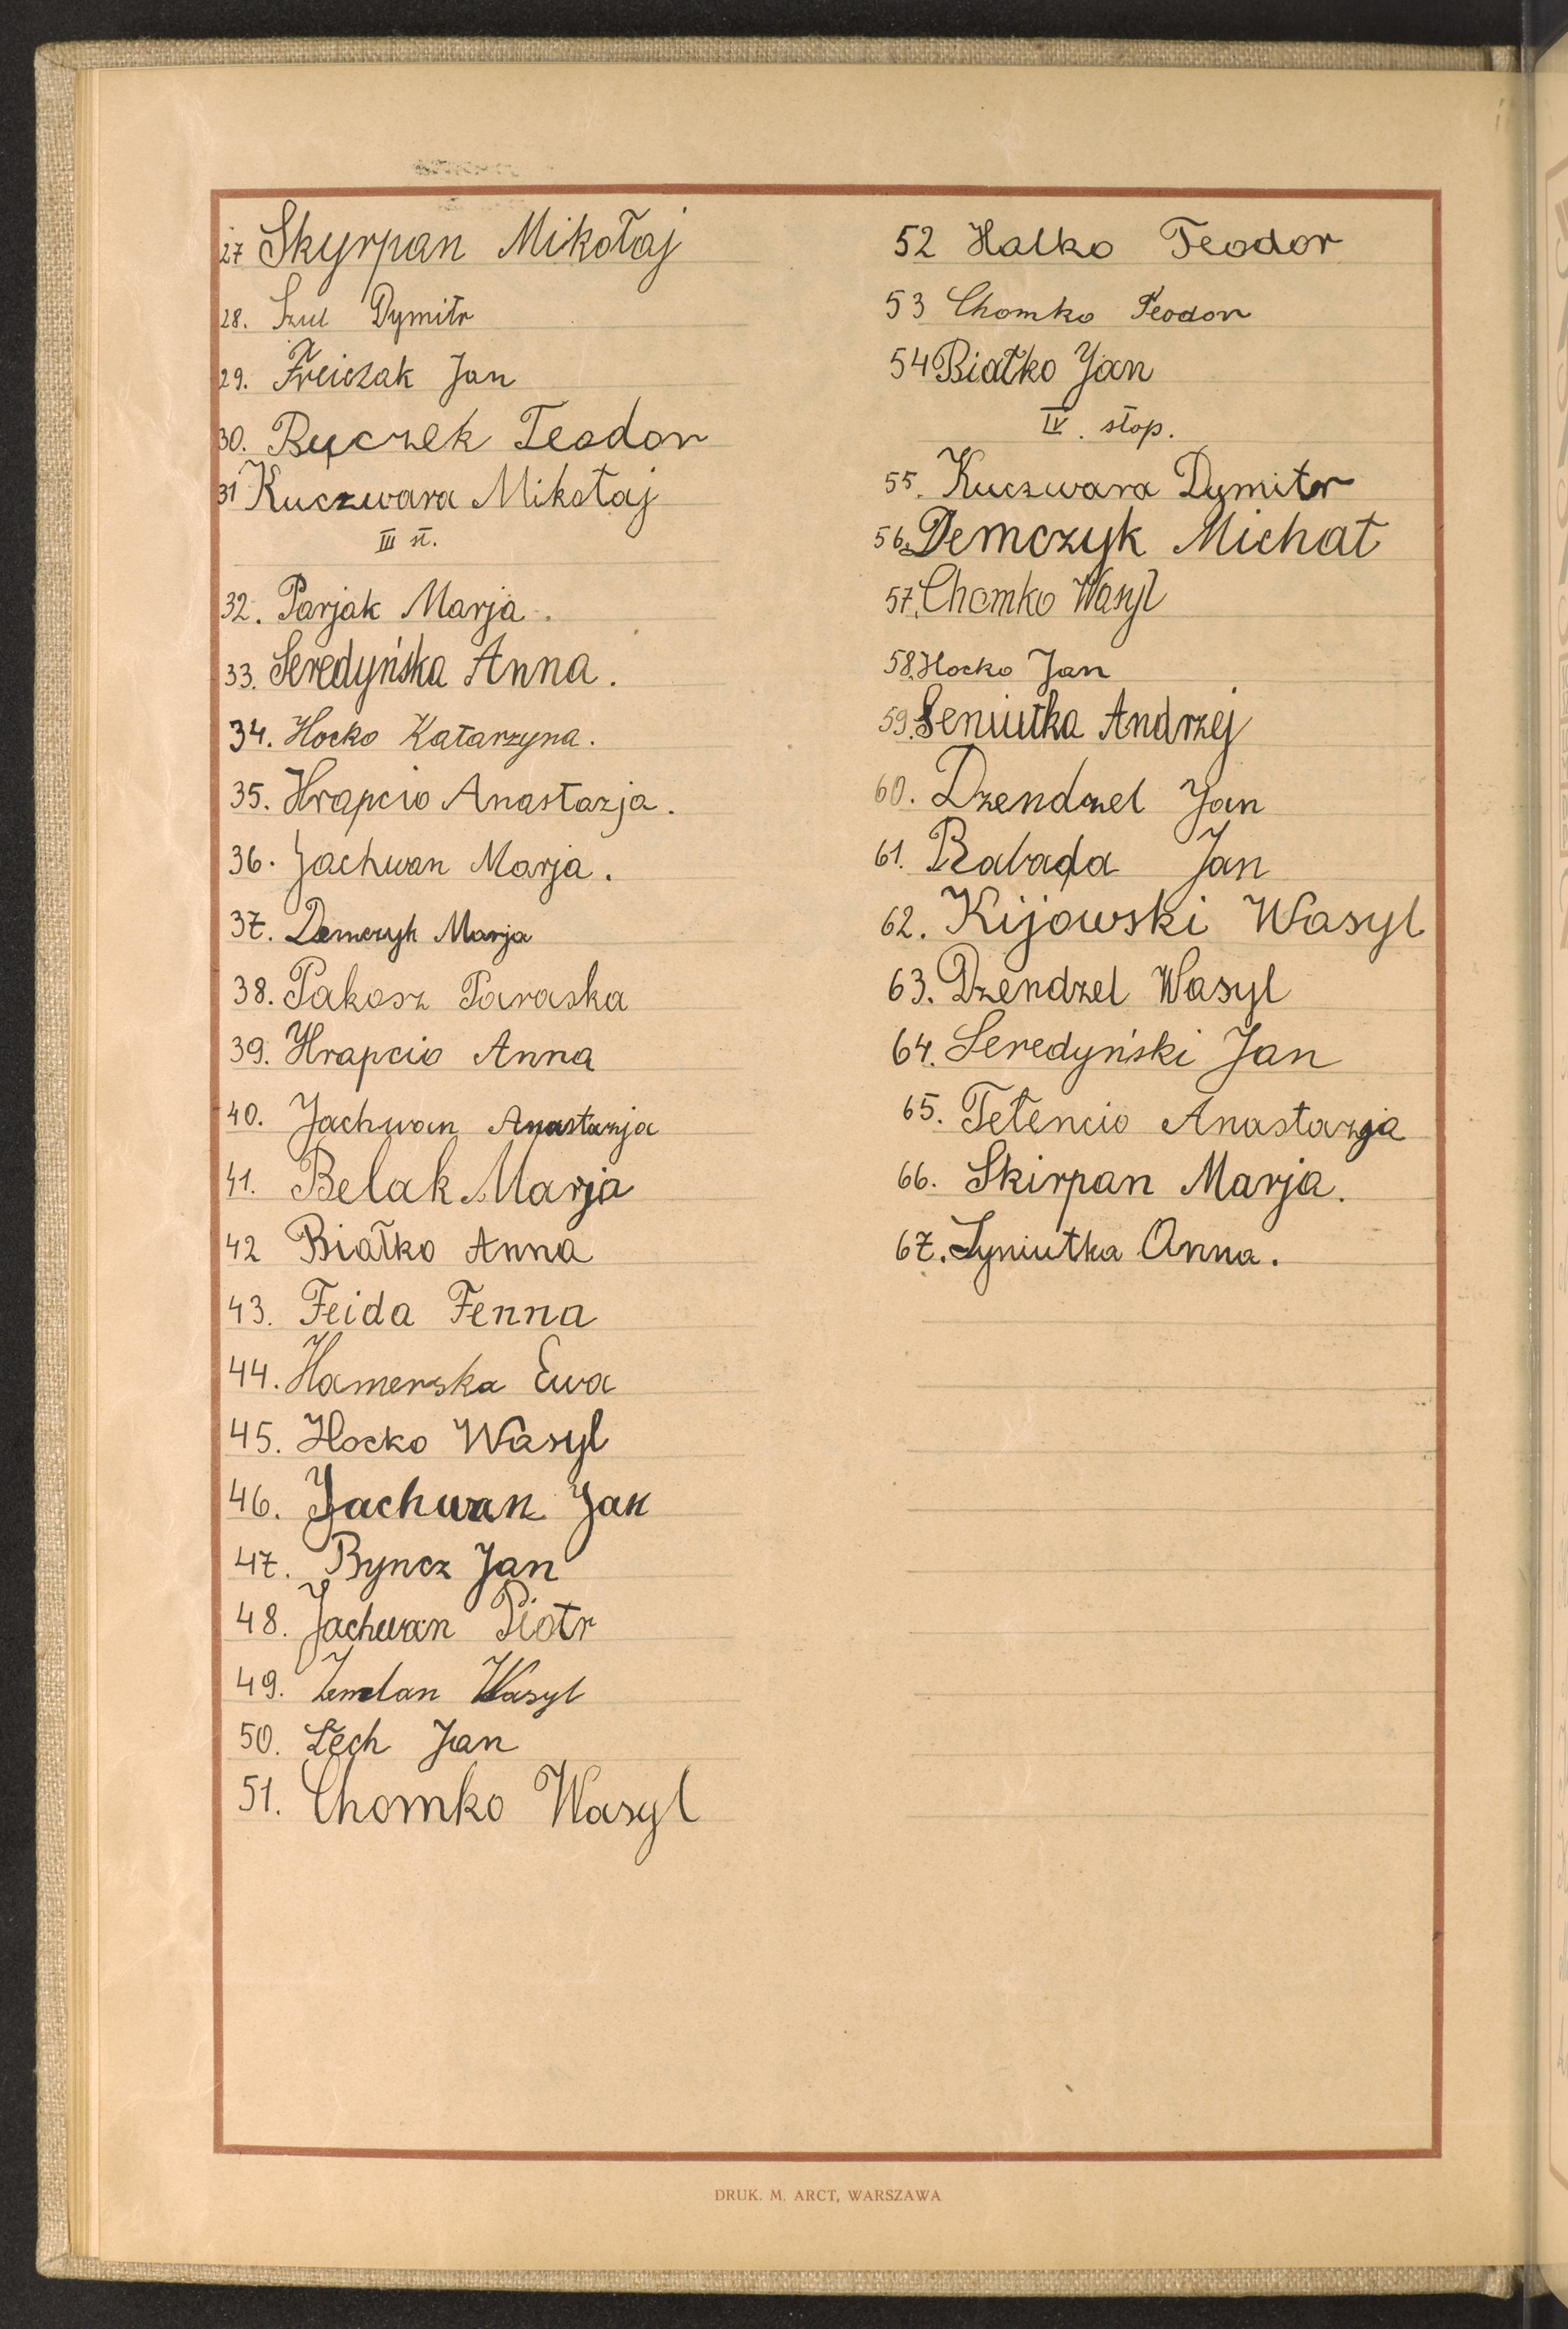 27 Skyrpan Mikołaj
28. Szul Dymitr
29. Freiczak Jan
30. Buczek Teodor
31 Kuczwara Mikołaj
III st.
32. Parjak Marja.
33. Seredyńska Anna.
34. Hocko Katarzyna.
35. Hrapcio Anastazja.
36. Jachwan Marja.
37. Demczyk Marja
38. Pakosz Paraska
39. Hrapcio Anna
40. Jachwan Anastazja
41. Belak Marja
42 Białko Anna
43. Feida Fenna
44. Hamerska Ewa
45. Hocko Wasyl
46. Jachwan Jan
47. Byncz Jan
48. Jachwan Piotr
49. Wasyl
50. Lech Jan
51. Chomko Wasyl
52 Halko Teodor
53 Chomko Teodor
54 Białko Jan
IV. stop.
55. Kuczwara Dymitor
56. Demczyk Michał
57. Chomko Wasyl
58. Hocko Jan
59. Seniutka Andrzej
60. Dzendzel Jan
61. Jan
62. Kijowski Wasyl
63. Dzendzel Wasyl
64. Seredyński Jan
65. Tetencio Anastazja
66. Skirpan Marja.
67. Syniutka Anna.
DRUK. M. ARCT, WARSZAWA